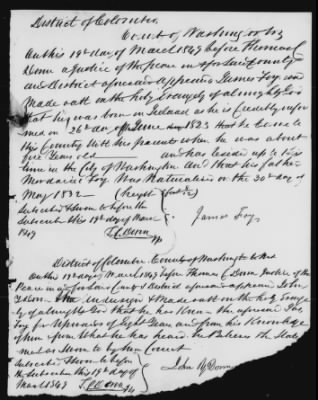 District of Columbia
County of Washington to wit
On this 19th day of March 1849 before Thomas C
Donn a Justice of the peace in & for said County
and District aforesaid appears James Foy and
Made oath on the holy Evangely of almighty God
that he was born in Ireland as he is Credibly infor
med on 26th day of June 1823 that he came to
this Country with his parents when he was about
five years old and has resided up to this
time in the City of Washington and that his father
Mordacai Foy was Naturalised on the 30th day of
May 1832
Subscribed & sworn to before the
Subscriber this 19th day of March
1849
James Foy
T C Donn
District of Columbia County of Washington to wit
On this 19th day of March 1849 before Thomas C Donn Justice of the
Peace in & for said County & District aforesaid appears John
Y Donn and made oath on the holy Evange
ly of almighty God that he has Known the aforesaid Jas
Foy for upwards of Eight years and from his Knowledge
of him from what he has heard he believes the State
ment as Sworn to by him Correct
Subscribed & Sworn to before
the Subscriber this 19th day of
March 1849
T C Donn
John Y Donn